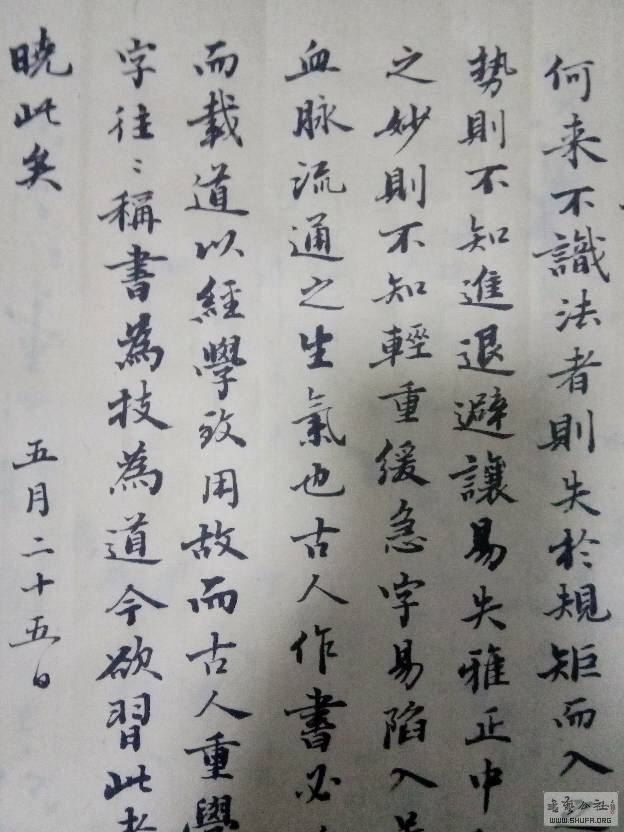 何来不識法者則失於規矩而入
勢則不知進退避讓易失雅正中
之妙則不知輕重緩急字易陷入
血脉流通之生氣也古人作書必
而載道以經學致用故而古人重學
字往〻稱書為技為道今欲習此者
曉此矣
五月二十五日
WWW.SHUFA.ORG